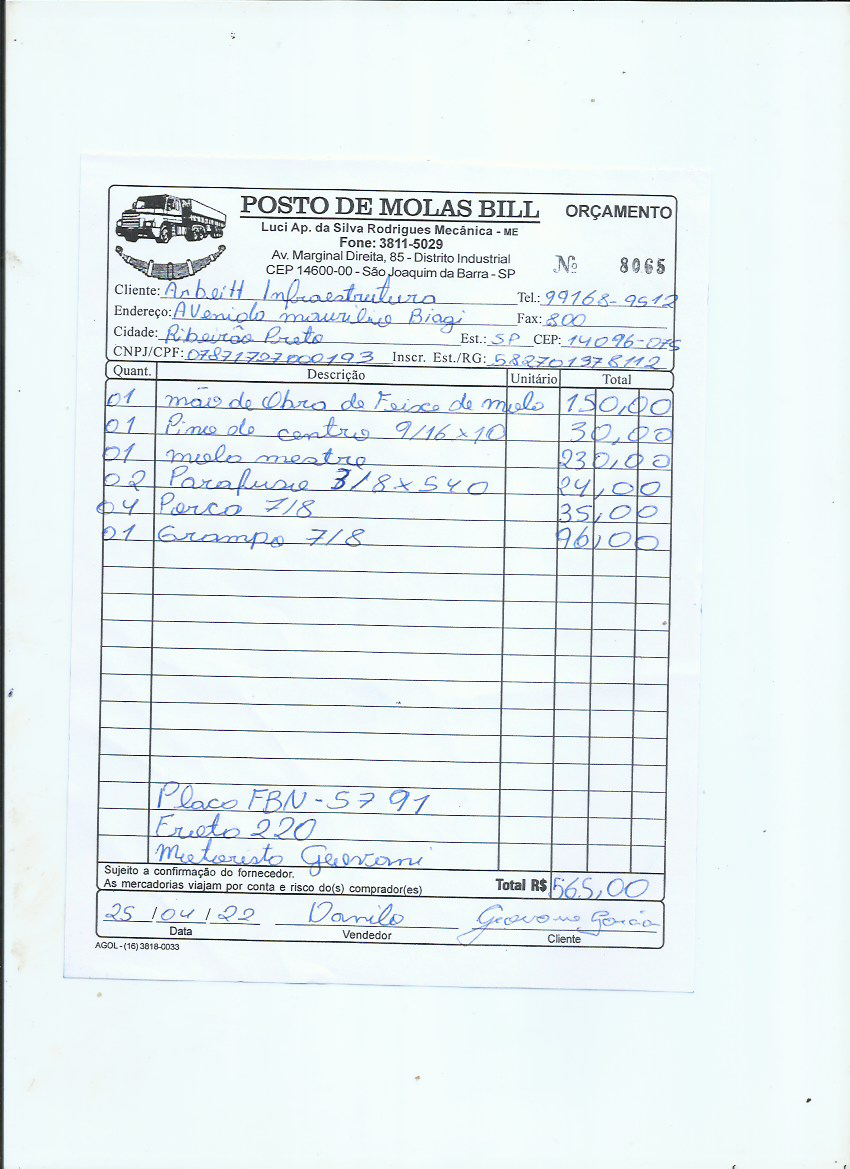 POSTO DE MOLAS BILL ORÇAMENTO
Luci Ap. da Silva Rodrigues Mecânica - ME
Fone: 3811-5029
Av. Marginal Direita, 85 - Distrito Industrial
CEP 14600-00 - São Joaquim da Barra - SP
Nº 8065
Cliente: Arbeitt Infraestrutura Tel.: 99168-9512
Endereço: AVenida maurilio Biagi Fax: 800
Cidade: Ribeirão Preto Est.: SP CEP: 14096-075
CNPJ/CPF: 07871707000193 Inscr. Est./RG: 582701378112
Quant. Descrição Unitário Total
01 mão de Obra de Feixe de mola 150,00
01 Pino de centro 9/16 x 10 30,00
01 mola mestre 230,00
02 Parafuso 3/8 x 540 24,00
04 Porca 7/8 35,00
01 Grampo 7/8 96,00
Placa FBN-5791
Frota 220
Motorista Geovani
Sujeito a confirmação do fornecedor.
As mercadorias viajam por conta e risco do(s) comprador(es)
Total R$ 565,00
25 / 04 / 22 Danilo Geovane Garcia
Data Vendedor Cliente
AGOL - (16) 3818-0033